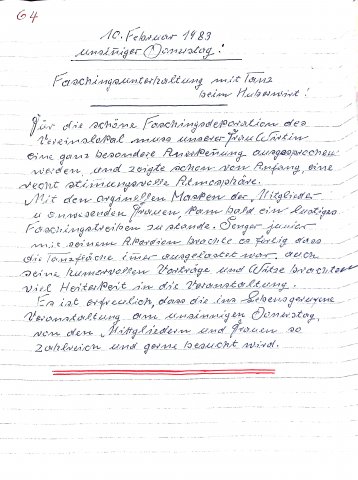 64
10. Februar 1983
unsinniger Donnerstag!
Faschingsunterhaltung mit Tanz
beim Huberwirt!
Für die schöne Faschingsdekoration des
Vereinslokal muss unserer Frau Wirtin
eine ganz besondere Anerkennung ausgesprochen
werden, und zeigte schon von Anfang, eine
recht stimmungsvolle Atmosphäre.
Mit den originellen Masken der Mitglieder
u. anwesenden Frauen, kam bald ein lustiges
Faschingstreiben zustande. Senger junior
mit seinem Akordeon brachte es fertig dass
die Tanzfläche imer ausgelastet war, auch
seine humorvollen Vorträge und Witze brachten
viel Heiterkeit in die Veranstaltung.
Es ist erfreulich, dass die ins Leben gerufene
Veranstaltung am unsinnigen Donnerstag,
von den Mittgliedern und Frauen so
zahlreich und gerne besucht wird.